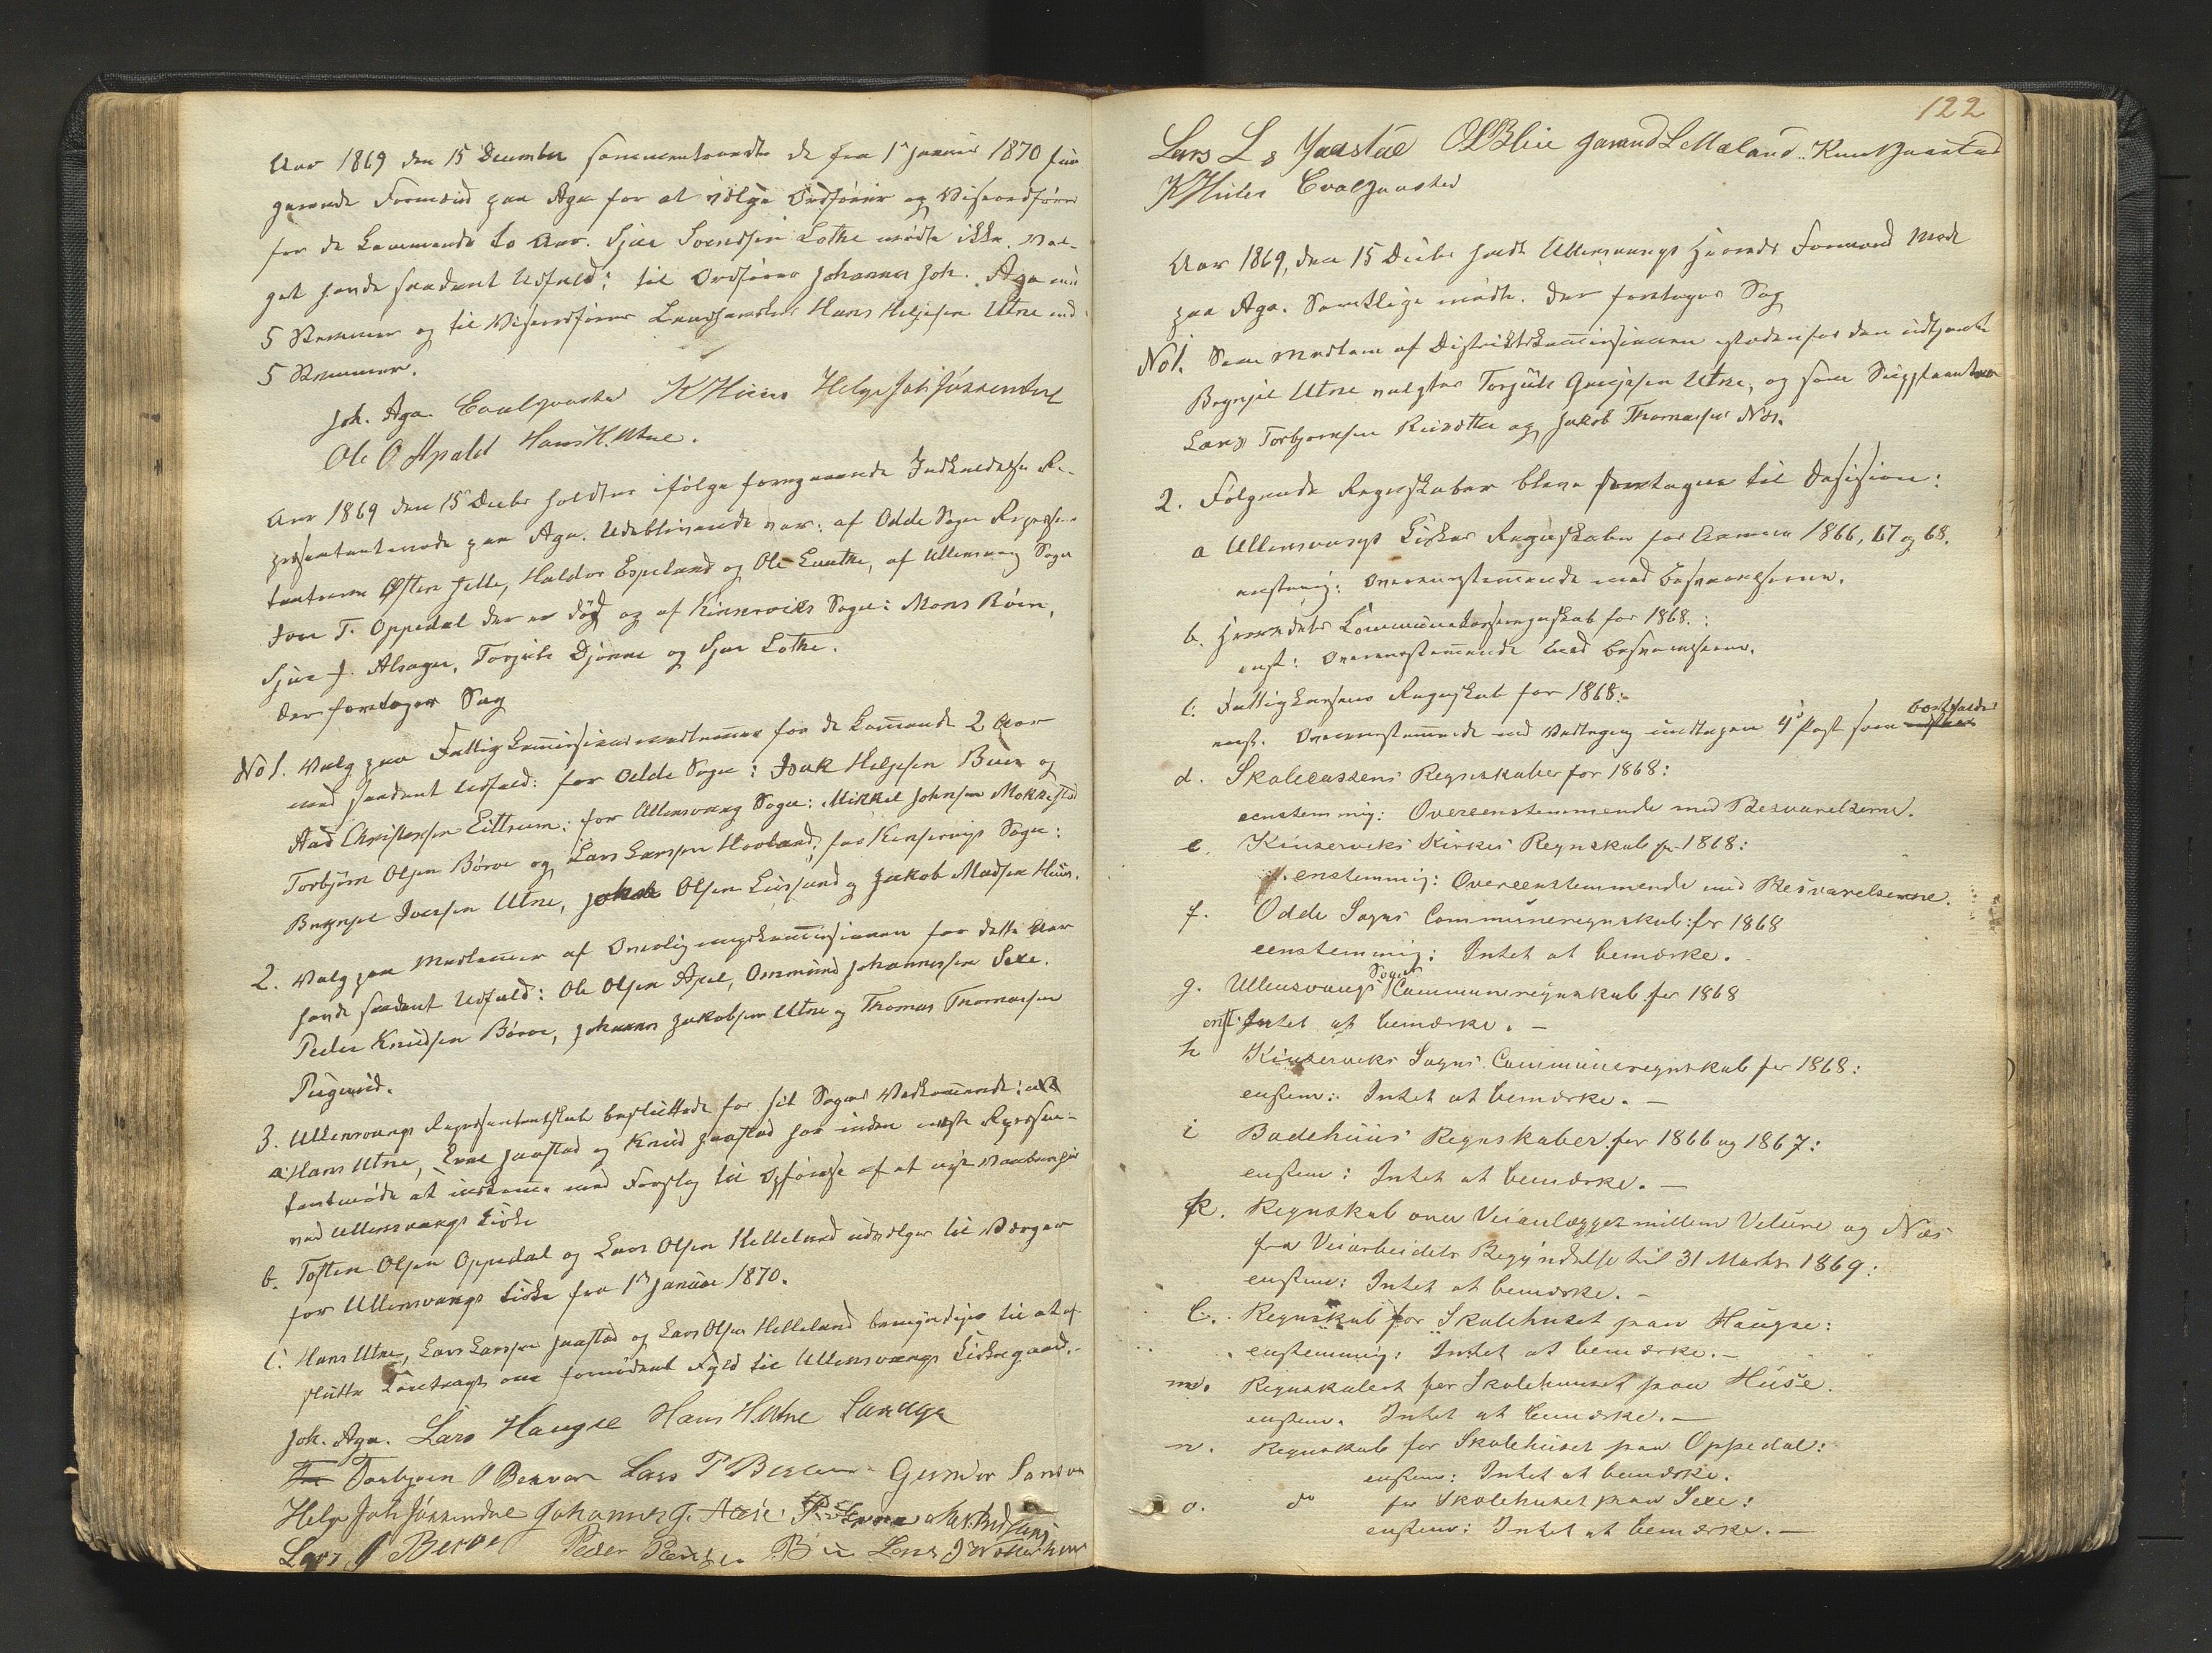 Aar 1869 den 15 December sammentraadte de fra 1ste Januar 1870 fun
gerende Formænd paa Aga for at vælge Ordfører og Viseordfører
for de kommende to Aar. Sjur Svendsen Lothe mødte ikke. Val-
get havde saadant Udfald: til Ordfører Johannes Joh. Aga med
5 Stemmer og til Viseordfører Landhandler Hans Helgesen Utne med
5 Stemmer.
Joh. Aga. K Huus Helge Joh
Ole O Apald Hans H. Utne.
Aar 1869 den 15 Decbr holdtes ifølge foregaaende Indkaldelse Re-
præsentantmøde paa Aga. Udeblivende var: af Odde Sogn Repræsen-
tanterne Østen Jelle, Haldor Espeland og Ole Eunthe, af Ullensvang Sogn
Jon T. Oppedal der er død og af Kinserviks Sogn: Mons Røen,
Sjur J. Alsager, Torgils Djønne og Sjur Lothe.
Der foretoges Sag
No 1. Valg paa Fattigkommissionsmedlemmer for de kommende 2 Aar
med saadant Udfald: for Odde Sogn: Isak Helgesen Buer og
Aad Christensen Eittreim; for Ullensvang Sogn: Mikkel Johnsen Mokkestad
Torbjørn Olsen Børve og Lars Larsen Hovland; for Kinserviks Sogn:
Brynjel Iversen Utne, Olsen og Jakob Madsen Huus.
2. Valg paa Medlemmer af Overligningskommissionen for dette Aar
havde saadant Udfald: Ole Olsen Apal, Ommund Johannessen Sexe.
Peder Knudsen Børve, Johannes Jakobsen Utne og Thomas Thomassen
3. Ullensvangs Repræsentantskab besluttede for sit Sogns Vedkommende: at
a. Hans Utne, Jaastad og Knud Jaastad har inden næste Repræsen-
tantmøde at indkomme med Forslag til Opførelse af et nyt
ved Ullensvangs Kirke
b. Tosten Olsen Oppedal og Lars Olsen Helleland udvælges til Værger
for Ullensvangs Kirke fra 1ste Januar 1870.
c. Hans Utne, Lars Larsen Jaastad og Lars Olsen Helleland bemyndiges til at af-
slutte Contragt om fornødent Fyld til Ullensvangs Kirkegaard.-
Joh. Aga. Lars Haugse Hans H Utne Lars Aga
Torbjørn Lars P Gunder
Helge Joh Johannes J.
Lars Berve Peder Lars J
122
Lars L s Jaastad O L Blie Jarand L Mæland Knut Jaastad
K Huus
Aar 1869, den 15 Decbr holdt Ullensvangs Herreds Formænd Møde
paa Aga. Samtlige mødte. Der foretoges Sag
No 1. Som Medlem af Distriktskommissionen istedenfor den udtjente
Brynjel Utne valgtes Torgils Utne, og som Suppleanter
Lars Torbjørnsen Reisæter og Jakob Thomassen Næs.
2. Følgende Regnskaber bleve foretagne til Desision:
a Ullensvangs Kirkes Regnskaber for Aarene 1866, 67 og 68.
enstemig: Overensstemmende med Besvarelserne.
b. Herredets Kommunekasseregnskab for 1868.:
enst: Overensstemmende med Besvarelserne.
c. Fattigkassens Regnskab for 1868:
enst. Overensstemmende med Vedtagen undtagen 4de Post som bortfalder
d. Skolecassens Regnskaber for 1868:
eenstemmig: Overeenstemmende med Besvarelserne.
e. Kinserviks Kirkes Regnskab for 1868:
enstemmig: Overeenstemmende med Besvarelserne.
f. Odde Sogns Communeregnskab: for 1868
eenstemmig: Intet at bemærke.
g. Ullensvangs Sogns Communeregnskab for 1868
enst: Intet at bemærke. –
h Kinserviks Sogns Communeregnskab for 1868:
enstem: Intet at bemærke. –
i Badehuus Regnskaber for 1866 og 1867:
enstem: Intet at bemærke. –
k. Regnskab over Veianlægget millem Velure og Næs
fra Veiarbeidets Begyndelse til 31 Marts 1869:
enstem: Intet at bemærke. –
l. Regnskab for Skolehuset paa Haugse:
enstemmig: Intet at bemærke. –
m. Regnskabet for Skolehuuset paa Huse.
enstem. Intet at bemærke. –
n. Regnskab for Skolehuset paa Oppedal:
enstem: Intet at bemærke.
o. do for Skolehuset paa Sexe:
enstem: Intet at bemærke. –